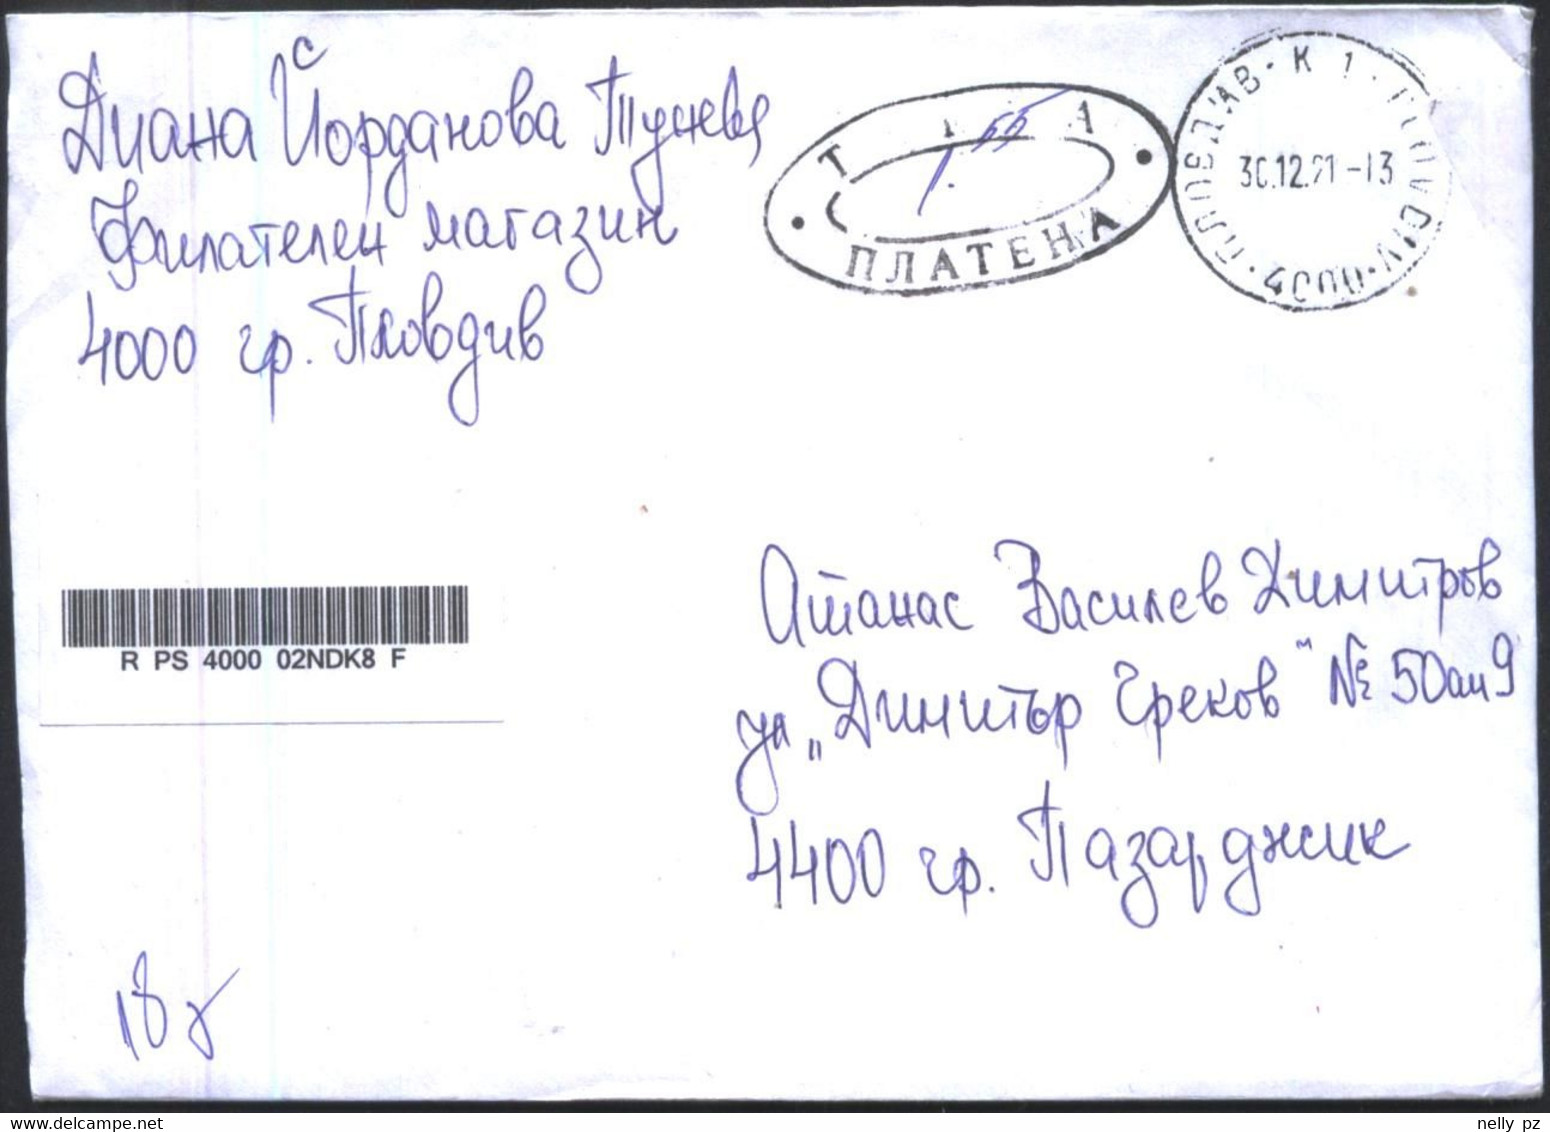 Диана Йорданова Тунева
Филателен магазин
4000 гр. Пловдив
ТАКСА
1.55
ПЛАТЕНА
ПЛОВДИВ · К 1 · PLOVDIV · 4000
30.12.21-13
R PS 4000 02NDK8 F
Атанас Василев Димитров
ул „Димитър Греков" № 50 ап 9
4400 гр. Пазарджик
18 г
nelly_pz